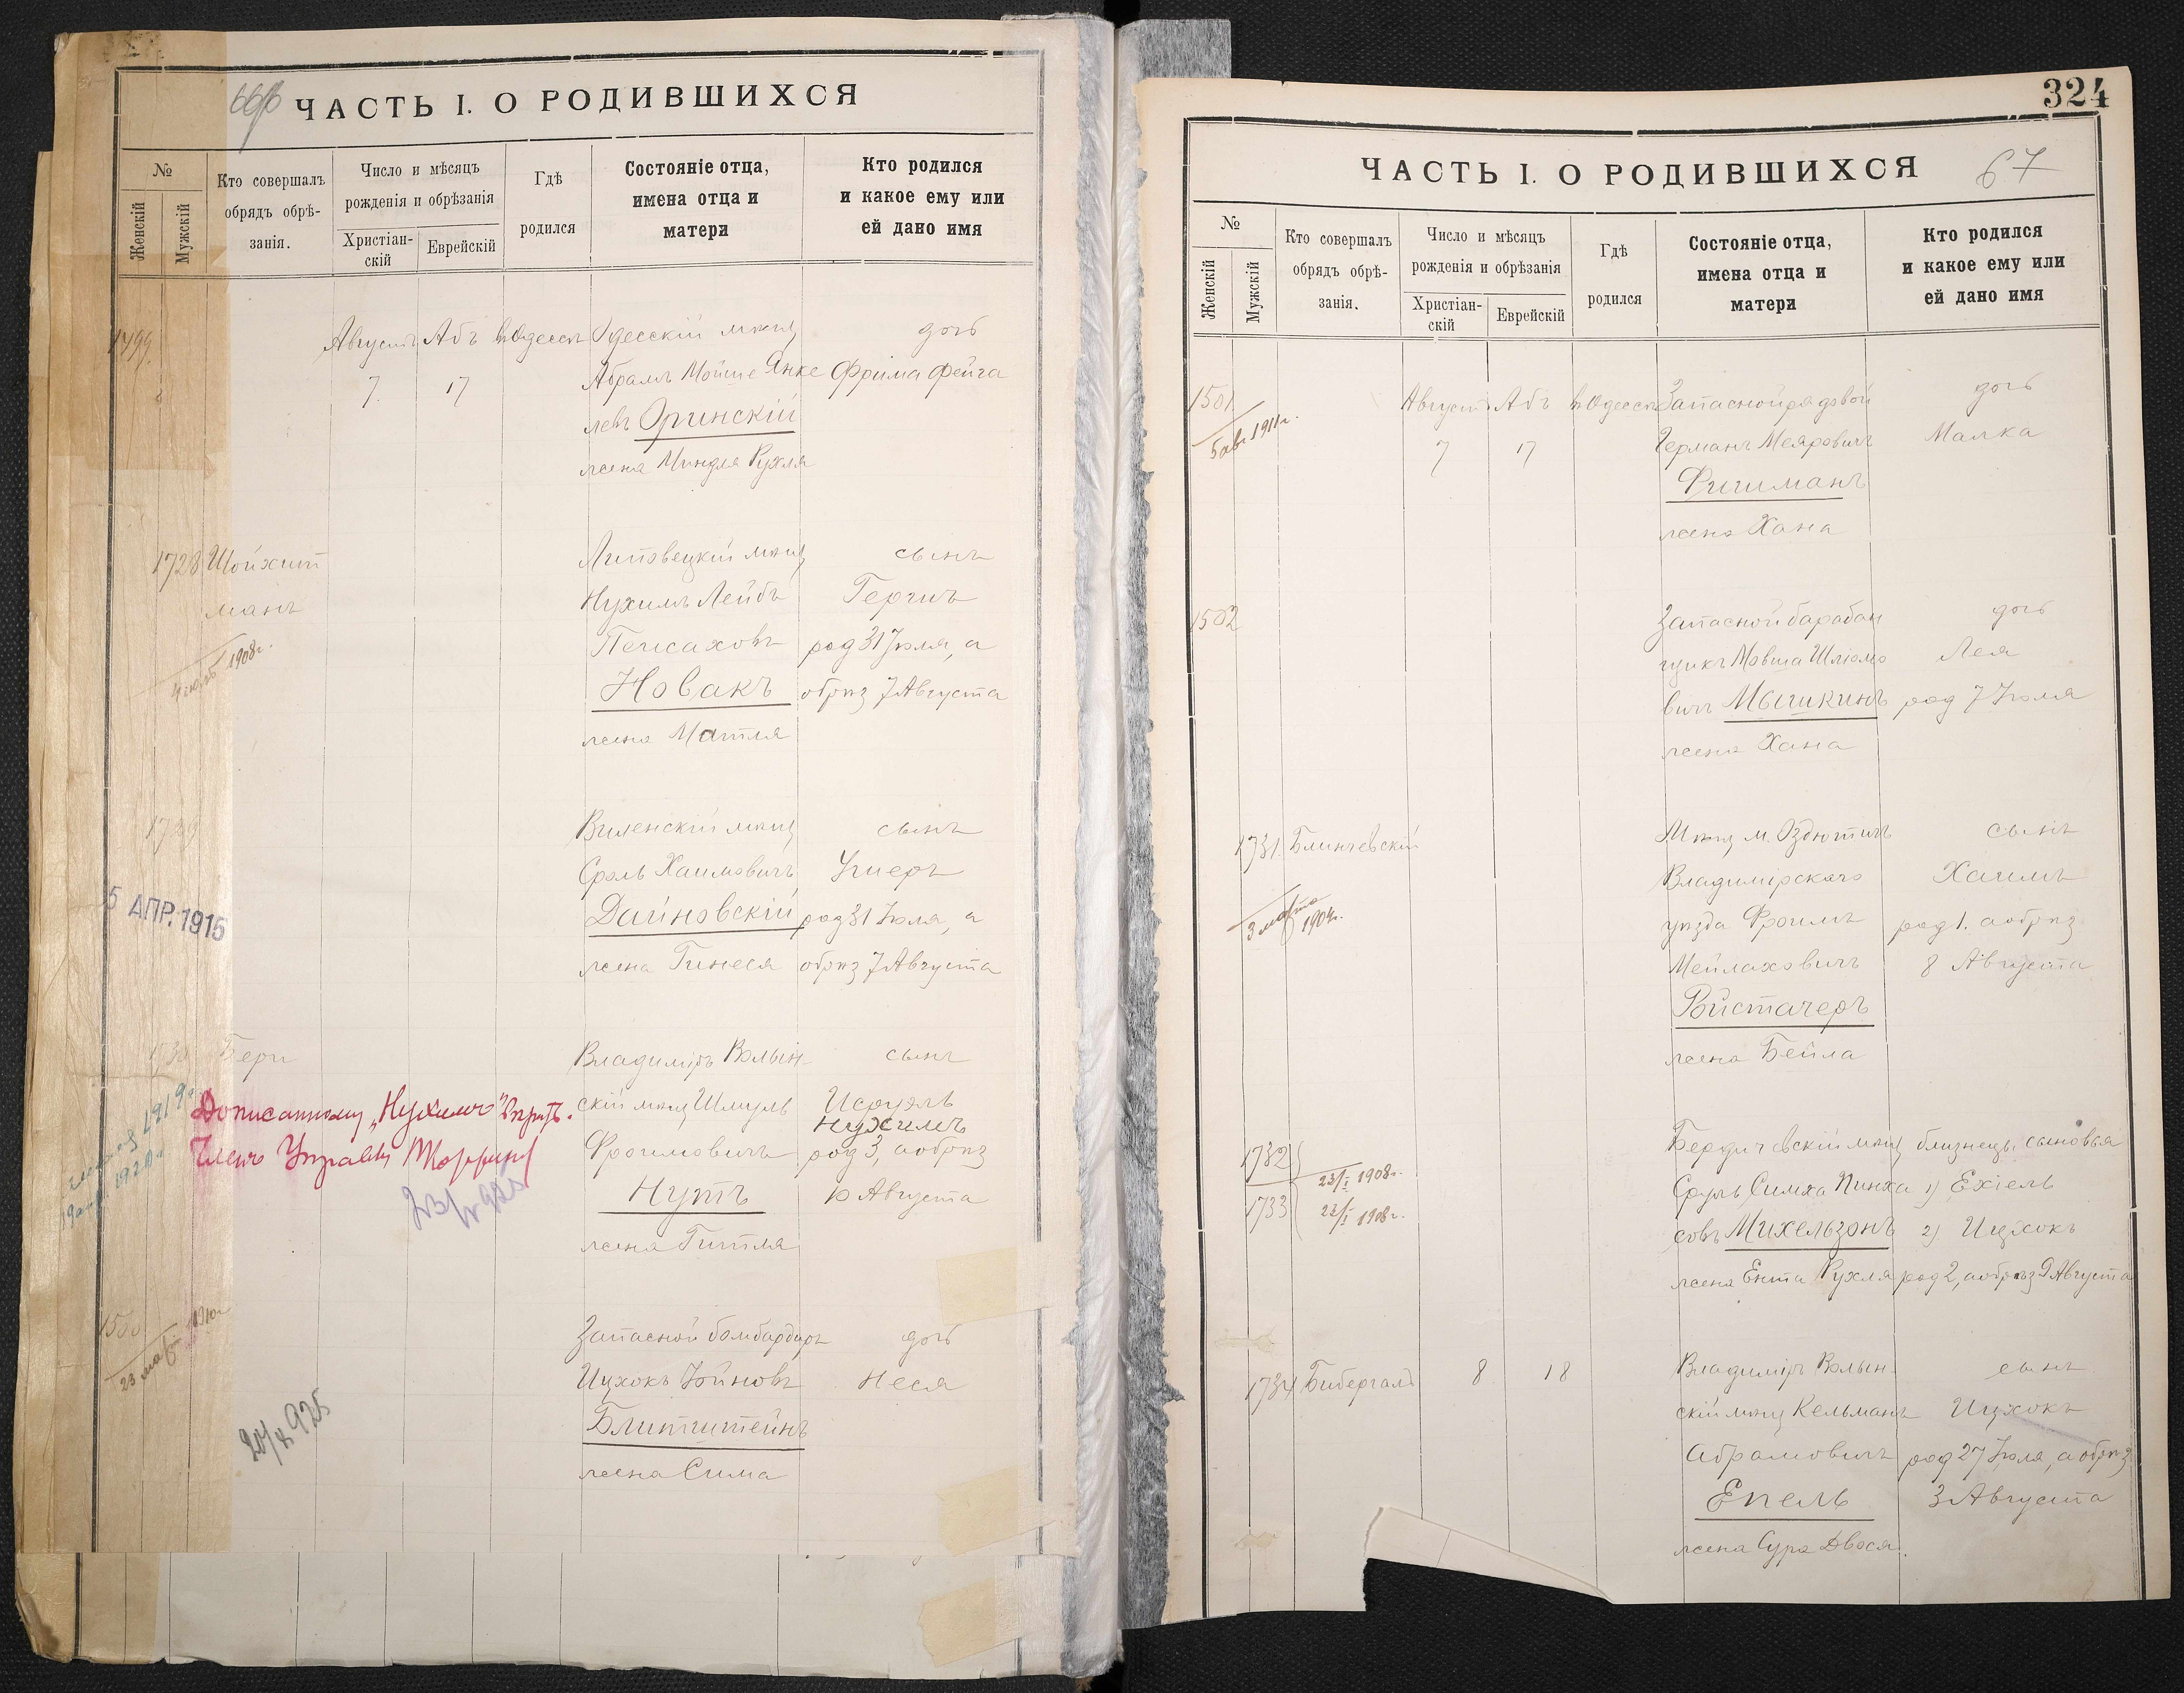 ЧАСТЬ I. О РОДИВШИХСЯ
№
Женскій
Мужскій
Кто совершалъ
обрядъ обрѣ-
занія.
Число и мѣсяцъ
рожденія и обрѣзанія
Христіан-
скій
Еврейскій
Гдѣ
родился
Состояніе отца,
имена отца и
матери
Кто родился
и какое ему или
ей дано имя
1499 Августъ Абъ въ Одессѣ Одесскій мѣщ дочь
7 17 Абрамъ Мойше Янке Фрима Фейга
левъ Оринскій
жена Миндля Рухля
1728 Шойхит Липовецкій мѣщ сынъ
манъ Нухимъ Лейбъ Гершъ
Пейсаховъ род 31 Іюля, а
Новакъ обрѣз 7 Августа
жена Матля
1908г.
1729 Виленскій мѣщ сынъ
Сроль Хаимовичъ Ушеръ
5 АПР. 1915
Дайновскій род 31 Іюля, а
жена Гинеся обрѣз 7 Августа
1730 Бери Владиміръ Волын- сынъ
скій мѣщ Шмуль Исруэль
Нухимъ
Дописанному „Нухимъ" вѣрить.
Членъ Управы
Фроимовичъ род 3, а обрѣз
Нутъ 10 Августа
жена Гитля
1500 Запасной бомбардиръ дочь
23 март 1910г
Ицхокъ Іойновъ Неся
Блитштейнъ
жена Сима
324
ЧАСТЬ I. О РОДИВШИХСЯ 67
№
Женскій
Мужскій
Кто совершалъ
обрядъ обрѣ-
занія.
Число и мѣсяцъ
рожденія и обрѣзанія
Христіан-
скій
Еврейскій
Гдѣ
родился
Состояніе отца,
имена отца и
матери
Кто родился
и какое ему или
ей дано имя
1501 Август Абъ въ Одессѣ Запасной рядовой дочь
5 авг 1911г.
7 17 Германъ Меяровичъ Малка
Фишманъ
жена Хана
1502 Запасной барабан дочь
щикъ Мовша Шліомо Лея
вичъ Мышкинъ род 7 Іюля
жена Хана
1731 Блинчевскій Мѣщ м. Оздютичъ сынъ
Владимірскаго Хаимъ
3 марта 1904г.
уѣзда Фроимъ род 1. а обрѣз
Мейлаховичъ 8 Августа
Войстачеръ
жена Бейла
1732 23/I 1908г. Бердичевскій мѣщ близнецы сыновья
1733 23/I 1908г. Сруль Симха Пинха 1) Ехіель
совъ Михельзонъ 2) Ицхокъ
жена Ента Рухля род 2, а обрѣз 9 Августа
1734 Бибергалъ 8 18 Владиміръ Волын- сынъ
скій мѣщ Кельманъ Ицхокъ
Абрамовичъ род 27 Іюля, а обрѣз
Епель 3 Августа
жена Сура Двося.